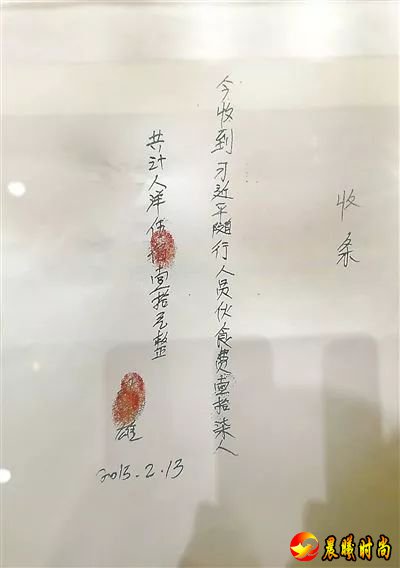 收条
今收到习近平随行人员伙食费壹拾柒人
共计人洋伍壹拾元整
雄
2013.2.13
晨曦时尚